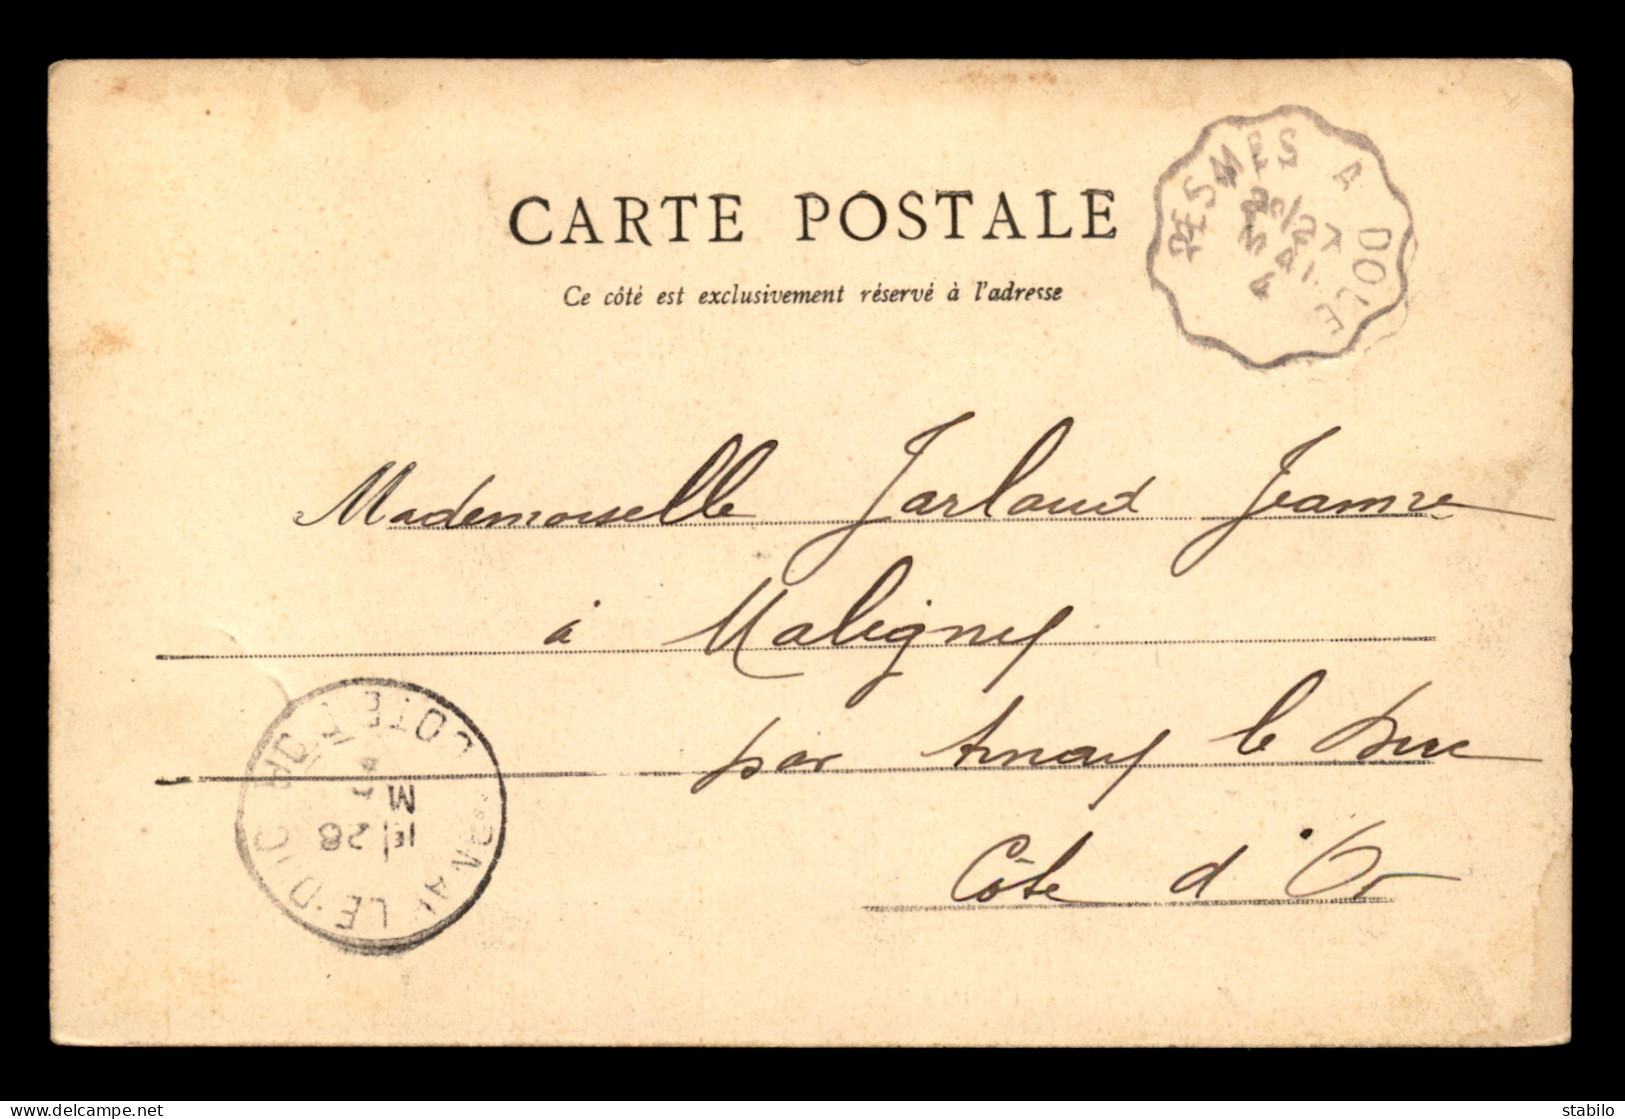 CARTE POSTALE
Ce côté est exclusivement réservé à l'adresse
PESMES A DOLE
MAI
4
Mademoiselle Jarlaud Jeanne
à Maligny
par Arnay le Duc
Côte d'Or
COTE D'OR
LE DUC
28
delcampe.net
stabilo